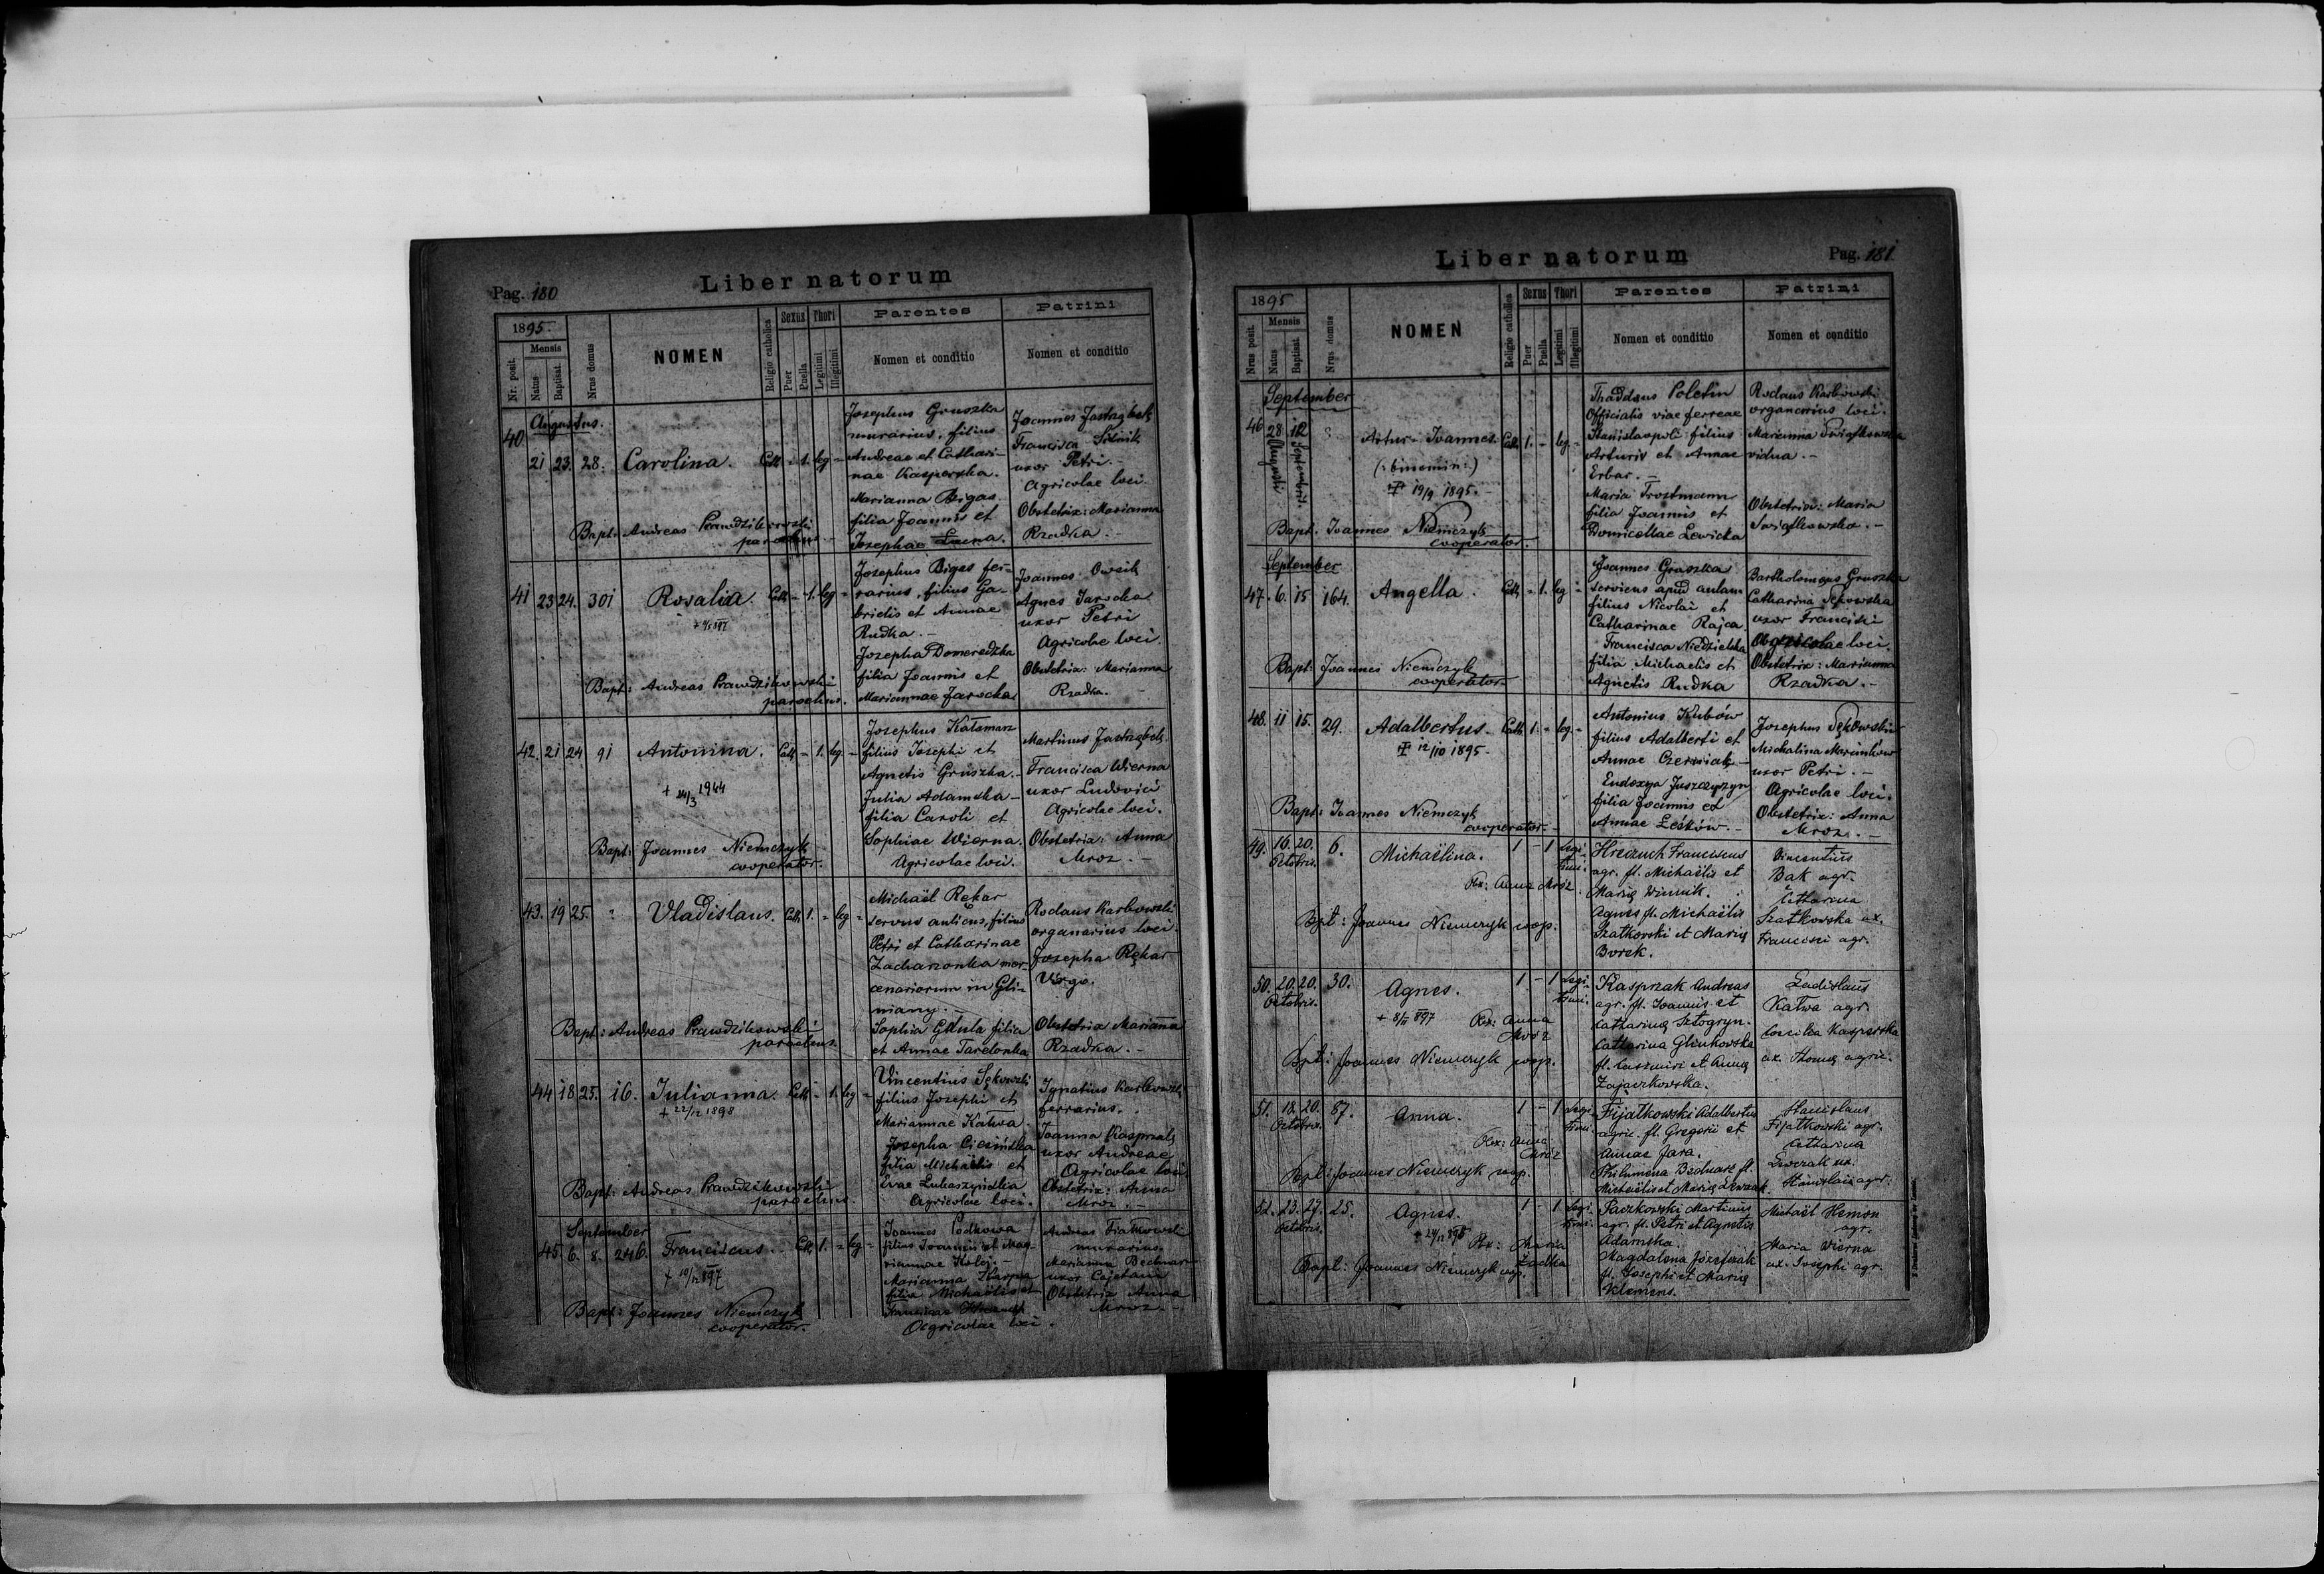 Pag. 180
Liber natorum
1895.
Nr. posit.
Mensis
Natus
Baptisat.
Nrus domus
NOMEN
Religio catholica
Sexus
Puer
Puella
Thori
Legitimi
Illegitimi
Parentes
Nomen et conditio
Patrini
Nomen et conditio
Augustus.
40 21 23. 28. Carolina. Cath - 1. leg =
Josephus Gruszka
murarius, filius
Andreae et Cathari-
nae Kasperska.
Marianna Bigas
filia Joannis et
Josephae
Joannes Jastrząbek
Francisca
uxor Petri.
Agricolae loci.
Obstetrix: Marianna
Rzadka.
Bapt: Andreas Prawdzikowski
parochus.
41 23 24. 301 Rosalia. Cath = 1. leg =
Josephus Bigas fer-
rarius, filius Ga-
brielis et Annae
Rudka.
Josepha Domeredzka
filia Joannis et
Mariannae Jarocka
Joannes
Agnes Jarocka
uxor Petri
Agricolae loci.
Obstetrix: Marianna
Rzadka.
Bapt: Andreas Prawdzikowski
parochus.
42. 21 24 91 Antonina. Cath = 1. leg =
+ 24/3 1944
Josephus Katamarz
filius Josephi et
Agnetis Gruszka.
Julia Adamska
filia Caroli et
Sophiae Wierna.
Agricolae loci.
Martinus Jastrząbek
Francisca Wierna
uxor Ludovici
Agricolae loci.
Obstetrix: Anna
Mroz.
Bapt: Joannes Niemczyk
cooperator.
43. 19 25. " Vladislaus. Cath 1. = leg =
Michaël Rękar
servus aulicus, filius
Petri et Catharinae
Zacharzonka mer-
cenariorum in Gli-
niany.
Sophia Gdula filia
et Annae Tarelonka
Rodaus Karbowski
organarius loci.
Josepha Rękar
Virgo.
Obstetrix Marianna
Rzadka.
Bapt: Andreas Prawdzikowski
parochus.
44 18 25. 16. Julianna. Cath = 1. leg =
+ 22/12 1898
Vincentius Sękowski
filius Josephi et
Mariannae Katwa.
Josepha Ciesińska
filia Michaëlis et
Evae Lukaszyńska
Agricolae loci.
Ignatius Karbowski
ferrarius.
Joanna Kasprzak
uxor Andreae
Agricolae loci
Obstetrix: Anna
Mroz.
Bapt: Andreas Prawdzikowski
parochus.
September
45. 6. 8. 246. Franciscus. Cath 1. = leg =
Joannes Podkowa
filius Joannis et Mar-
iannae Kolej.
Marianna
filia Michaëlis et
Agricolae loci.
Andreas Fiatkowski
murarius.
Marianna Bednarz
uxor Cajetani
Obstetrix Anna
Mroz
Bapt: Joannes Niemczyk
cooperator.
Liber natorum
Pag. 181
1895
Nrus posit.
Mensis
Natus
Baptisat.
Nrus domus
NOMEN
Religio catholica
Sexus
Puer
Puella
Thori
Legitimi
Illegitimi
Parentes
Nomen et conditio
Patrini
Nomen et conditio
September
46 28. Augusti 12 Septembris. " Artur Joannes. Cath 1. = leg =
(:binomin:)
19/9 1895.
Thaddaus Poletin
Officialis viae ferreae
Stanislaopoli filius
Arturis et Annae
Erbar.
Maria Trostmann
filia Joannis et
Domicellae Lewicka
Rodaus Karbowski
organarius loci.
Marianna Swiątkowska
vidua.
Obstetrix: Maria
Swiątkowska.
Bapt. Joannes Niemczyk
cooperator.
September
47. 6. 15 164. Angella. Cath = 1. leg =
Joannes Gruszka
serviens apud aulam
filius Nicolai et
Catharinae Rajca.
Francisca Niedzielska
filia Michaelis et
Agnetis Rudka
Bartholomaeus Gruszka
Catharina Sękowska
uxor Francisci
Agricolae loci.
Obstetrix: Marianna
Rzadka.
Bapt: Joannes Niemczyk
cooperator.
48. 11 15. 29. Adalbertus. Cath 1. = leg. =
12/10 1895.
Antonius Kubów
filius Adalberti et
Annae Czerniak
Eudoxya Juszczyszyn
filia Joannis et
Annae Leśków.
Josephus Sękowski
Michalina Marcinków
uxor Petri.
Agricolae loci.
Obstetrix: Anna
Mroz.
Bapt: Joannes Niemczyk
cooperator.
49. 16. 20. Octobris. 6. Michaëlina. 1 - 1 Legi-
timi.
Obx: Anna Mróz.
Hreczuch Franciscus
agr. fl. Michaëlis et
Mariae Winnik.
Agnes fl. Michaëlis
Szatkowski et Mariae
Borek.
Vincentius
Bak agr.
Catharina
Szatkowska ux.
Francisci agr.
Bpt: Joannes Niemczyk coop.
50. 20. 20. Octobris. 30. Agnes. 1 - 1 Legi-
timi.
+ 8/II 897
Obx: Anna
Mróz
Kasprzak Andreas
agr. fl. Joannis et
Catharinae Sztogryn.
Catharina Glinkowska
fl. Casimiri et Annae
Zajączkowska.
Ladislaus
Katwa agr.
Caecilia Kasperska
ux. Thomae agric.
Bpt: Joannes Niemczyk coop.
51. 18. 20. Octobris. 87. Anna. 1 - 1 Legi-
timi.
Obx: Anna
Mróz
Fijatkowski Adalbertus
agric. fl. Gregorii et
Annae Jara.
Philumena Bednarz fl.
Michaëlis et Mariae Lewczak.
Stanislaus
Fijatkowski agr.
Catharina
Lewczak ux.
Stanislai agr.
Bpt: Joannes Niemczyk coop.
52. 23. 27. Octobris. 25. Agnes. 1 - 1 Legi-
timi.
Obx: Maria
Zadka
Paczkowski Martinus
agr. fl. Petri et Agnetis
Adamska.
Magdalena Józefczak
fl. Josephi et Mariae
Klemens.
Michaël Hemon
agr.
Maria Wierna
ux. Josephi agr.
Bapt: Joannes Niemczyk coop.